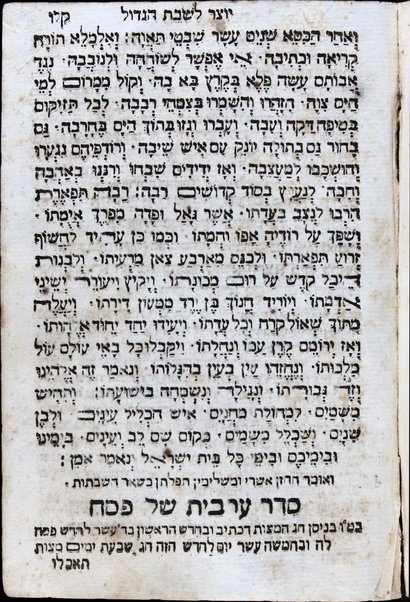 יוצר לשבת הגדול קלו
וְאַחַר הַכִּסֵּא שְׁנֵים עָשָׂר שִׁבְטֵי תַּאֲוָה: וְאִלְמָלֵא תוֹרָה
קְרִיאָה וּכְתִיבָה אִי אֶפְשָׁר נֶגֶד
אֲבוֹתָם עָשָׂה פֶלֶא בָּא בָהּ וְקוֹל מִמָּרוֹם לְמֵי
הַיָּם צִוָּה הִזָּהֲרוּ וְהִשָּׁמְרוּ רְבָבָה לְבַל תַּזִּיקוּם
בְּטִיפָּה דַקָּה וְעָבָה וְעָבְרוּ וְגָזוּ בְּתוֹךְ הַיָּם בֶּחָרָבָה גַּם
בָּחוּר גַּם בְּתוּלָה יוֹנֵק עִם אִישׁ שֵׂיבָה וְרוֹדְפֵיהֶם נִנְעֲרוּ
וְהוּשְׁכְּבוּ לְמַעֲצֵבָה וְאָז יְדִידִים שִׁבְּחוּ וְרִנְּנוּ בְּאַהֲבָה
וְחִבָּה לְנַעֲרָץ בְּסוֹד קְדוֹשִׁים רַבָּה: רַבָּה תִּפְאֶרֶת
הַרְבּוּ לְנֶצַח בַּעֲדָתוֹ אֲשֶׁר גָּאַל וּפָדָה מִפֶּרֶךְ אֲיֻמָּתוֹ
וְשָׁפַךְ עַל רוֹדֶיהָ אַפּוֹ וַחֲמָתוֹ וּכְמוֹ כֵן עָתִיד לַחְשׂוֹף
זְרוֹעַ תִּפְאַרְתּוֹ וּלְכַנֵּס מֵאַרְבַּע צֹאן מַרְעִיתוֹ וְלִבְנוֹת
הֵיכַל קֹדֶשׁ עַל רוּם מְכוֹנָתוֹ וְיָקִיץ וִיעוֹרֵר יְשֵׁינֵי
אַדְמָתוֹ וְיוֹרִיד חֲנוֹךְ בֶּן יֶרֶד מִמְּעוֹן דִּירָתוֹ וְיַעֲלֶה
מִתּוֹךְ שְׁאוֹל קֹרַח וְכָל עֲדָתוֹ וְיָעִידוּ יַחַד יִחוּד אֱלָהוּתוֹ
וְאָז יְרוֹמֵם קֶרֶן עַמּוֹ וְנַחֲלָתוֹ וִיקַבְּלוּ כָּל בָּאֵי עוֹלָם עוֹל
מַלְכוּתוֹ וְנֶחֱזֵהוּ עַיִן בְּעַיִן בְּהִגָּלוֹתוֹ וְנֹאמַר זֶה אֱלֹהֵינוּ
וְזֶה גְּבוּרָתוֹ וְנָגִילָה וְנִשְׂמְחָה בִּישׁוּעָתוֹ: וְתָחִישׁ
מִשָּׁמַיִם לִמְחוֹלַת מַחֲנַיִם אִישׁ חַכְלִיל עֵינַיִם וּלְבֶן
שִׁנַּיִם וּשְׁכָלֵל מִשָּׁמַיִם מָקוֹם שָׁם לֵב וְעֵינַיִם בְּיָמֵינוּ
וּבִימֵיכֶם וּבִימֵי כָּל בֵּית יִשְׂרָאֵל וְנֹאמַר אָמֵן:
ואומר החזן אשרי ומשלימין התפלתן כשאר השבתות
סדר ערבית של פסח
בט״ו בניסן חג המצות דכתיב ובחדש הראשון בי״ד עשר לחדש פסח
לה׳ ובחמשה עשר יום לחדש הזה חג שבעת ימים מצות
תאכלו